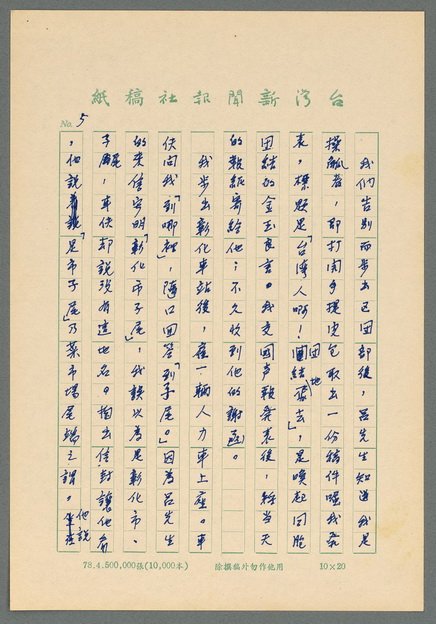 台灣新聞報社稿紙
No. 5
我們告別而步出團部後，呂先生知道我是
操觚者，即打開手提皮包取出一份稿件囑我發
表，標題是「台灣人啊！團結去」，是喚起同胞
团結的金玉良言。我交國声報發表後，將当天
的報紙寄給他；不久收到他的謝函。
我步出彰化車站後，在一輛人力車上座。車
伕問我「到哪裡」，隨口回答「到子尾。」因為呂先生
的來信寫明「彰化市子尾」，我誤以為是彰化市、
子尾，車伕却說沒有這地名。掏出信封讓他看
，他說「是市子尾」乃菜市場尾端之謂。他說
78.4.500,000張(10,000本)
除撰稿外勿作他用
10×20